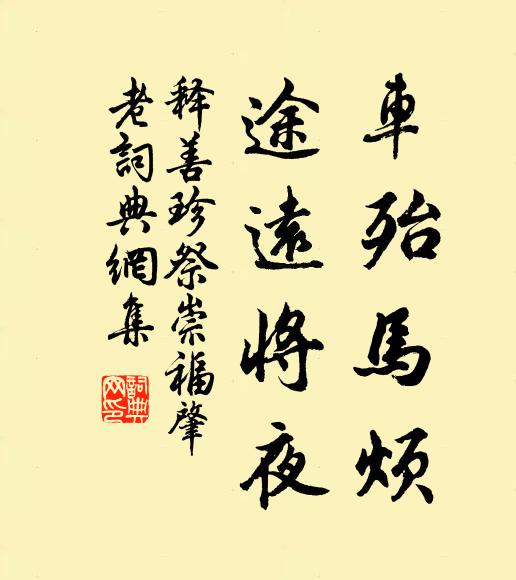 車殆馬煩
途遠將夜
释善珍祭崇福肇
老詞典網集
詞典网印